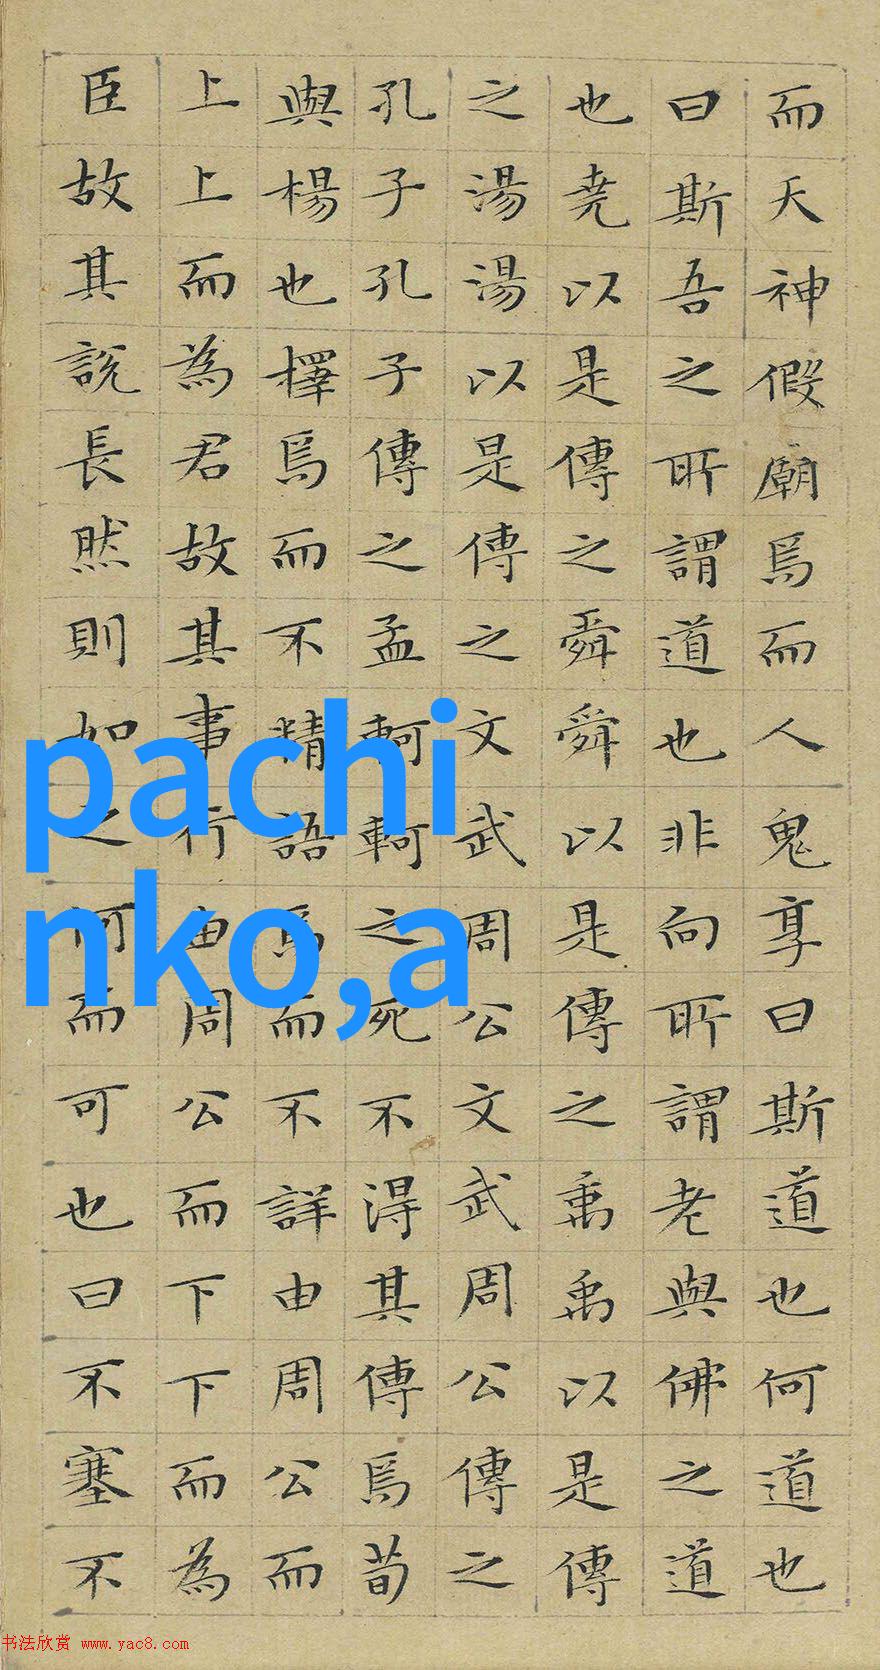 而天神假廟焉而人鬼享曰斯道也何道也
曰斯吾之所謂道也非向所謂老與佛之道
也堯以是傳之舜舜以是傳之禹禹以是傳
之湯湯以是傳之文武周公文武周公傳之
孔子孔子傳之孟軻軻之死不得其傳焉荀
與楊也擇焉而不精語焉而不詳由周公而
上上而為君故其事行由周公而下下而為
臣故其說長然則如之何而可也曰不塞不
pachi
nko,a
书法欣赏 www.yac8.com